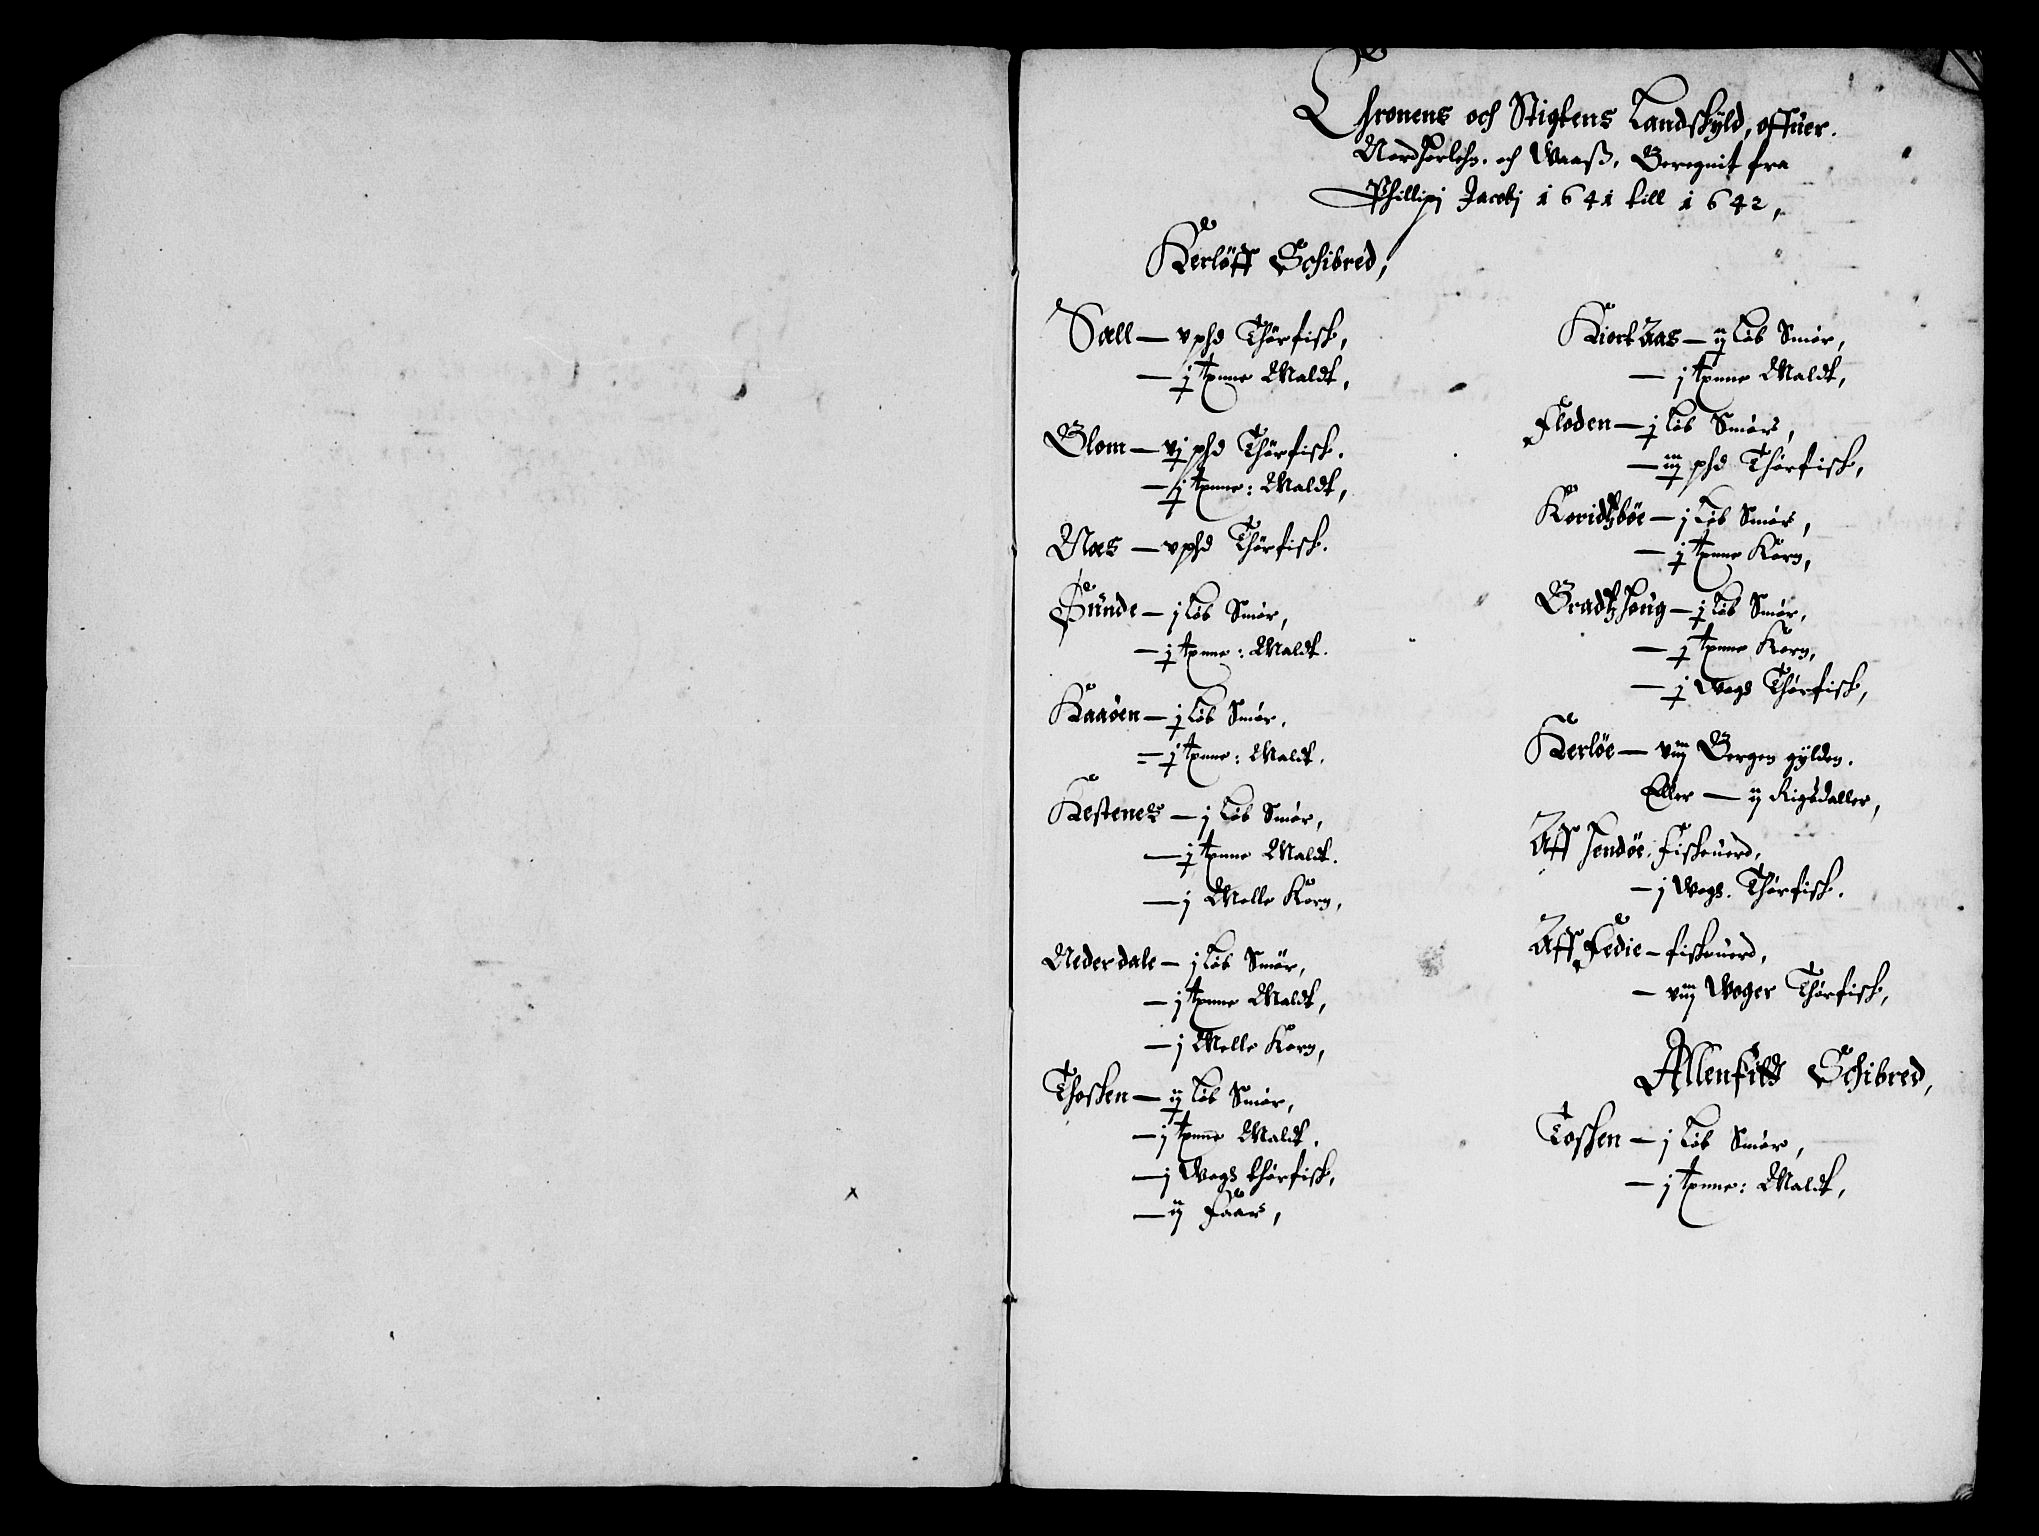 Chronens och Stigtens Landskyld, offuer.
Nordhorlehn. och Waass. Beregnit fra
Phillipi Jacobj 1641 till 1642,
Herlöff Schibred,
Sæll — v phd Thørfisk,
— j tynne Maldt,
Blom — vj phd Thørfisk.
— j tynne: Maldt,
Næs — v phd Thørfisk.
Sünde — j Løb Smør,
— j tynne: Maldt.
Kaaöen — j Løb Smør,
— j tynne: Maldt.
Kestenes — j Løb Smør,
— j tynne Maldt.
— j Melle Korn,
Nederdale — j Løb Smør,
— j tynne Maldt,
— j Melle Korn,
Thosken — ij Løb Smør,
— j tynne Maldt.
— j Wogs thørfisk,
— ij Faar,
Kiort Aas — ij Løb Smør,
— j tynne Maldt,
Floden — j Løb Smør,
— iij phd Thørfisk,
Koridtzböe — j Løb Smør,
— j tynne Korn,
Bradtzhoug — j Løb Smør,
— j tynne Korn,
— j Wogs Thørfisk,
Herlöe — viij Bergen gylden.
Eller — ij Rigsdaller,
Aff Fendöe. fiskeuerd,
— j Wogs. Thørfisk.
Aff Fedie — fiskeuerd,
— viij Woger Thørfisk,
Allenfitt Schibred,
Tosken — j Løb Smør,
— j tynne: Maldt,